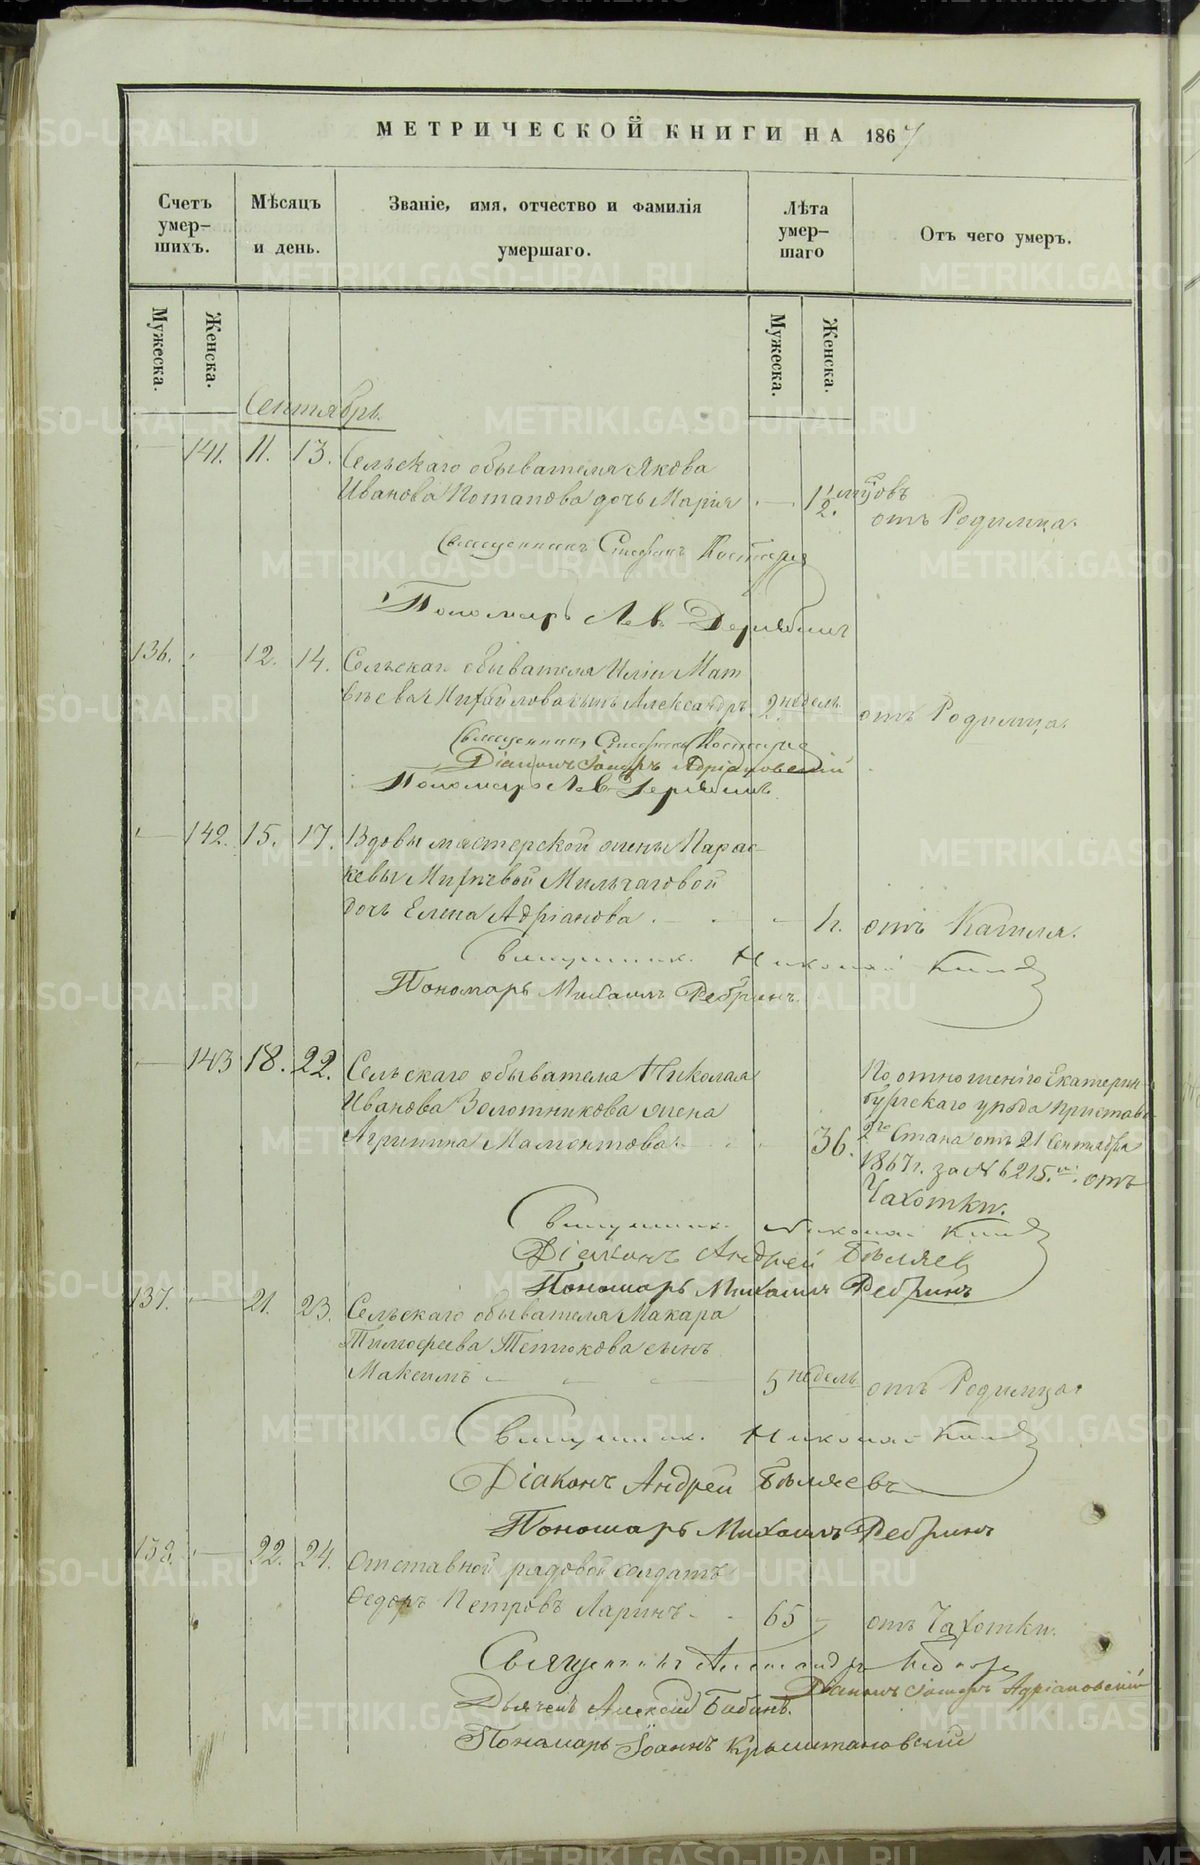 МЕТРИЧЕСКОЙ КНИГИ НА 1867
Счетъ умер-шихъ.
Мѣсяцъ и день.
Званіе, имя, отчество и фамилія умершаго.
Лѣта умер-шаго
Отъ чего умеръ.
Мужеска.
Женска.
Мужеска.
Женска.
Сентябрь.
141. 11. 13. Сельскаго обывателя Якова
Иванова Потапова дочь Марія 1 1/2. отъ Родимца.
Священникъ Стефанъ
Пономарь Левъ Дерябинъ
136. 12. 14. Сельскаго обывателя Иліи Мат
вѣева Михайлова сынъ Александръ. 2 недель отъ Родимца.
Священникъ Стефанъ
Діаконъ Іаковъ Адріановскій
Пономарь Левъ Дерябинъ
142. 15. 17. Вдовы мастерской жены Парас-
кевы
дочь Елена Адріанова 4. отъ Кашля.
Священникъ Николай
Пономарь Михаилъ Ребринъ
143 18. 22. Сельскаго обывателя Николая
Иванова Золотникова жена
Агрипина Мамонтова 36.
По отношенію Екатерин-
бургскаго уѣзда Пристава
2го Стана отъ 21 Сентября
1867 г. за № 6215. отъ
Чахотки.
Священникъ Николай
Діаконъ Андрей Бѣляев
Пономарь Михаилъ Ребринъ
137. 21. 23. Сельскаго обывателя Макара
Тимофеева сынъ
Максимъ 5 недель отъ Родимца.
Священникъ Николай
Діаконъ Андрей Бѣляевъ
Пономарь Михаилъ Ребринъ
138. 22. 24. Отставной рядовой солдатъ
Ѳедоръ Петровъ Ларинъ 65 отъ Чахотки.
Священникъ Александръ
Діаконъ Іаковъ Адріановскій
Дьячекъ Алексій Бабинъ.
Пономарь Іоаннъ
METRIKI.GASO-URAL.RU